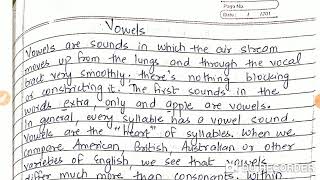 Page No.
Date:
Vowels
Vowels are sounds in which the air stream
moves up from the lungs and through the vocal
tract very smoothly; there's nothing blocking
or constricting it. The first sounds in the
words extra, only and apple are vowels.
In general, every syllable has a vowel sound.
Vowels are the "heart" of syllables. When we
compare American, British, Australian or other
varieties of English, we see that vowels
differ much more than consonants. Within